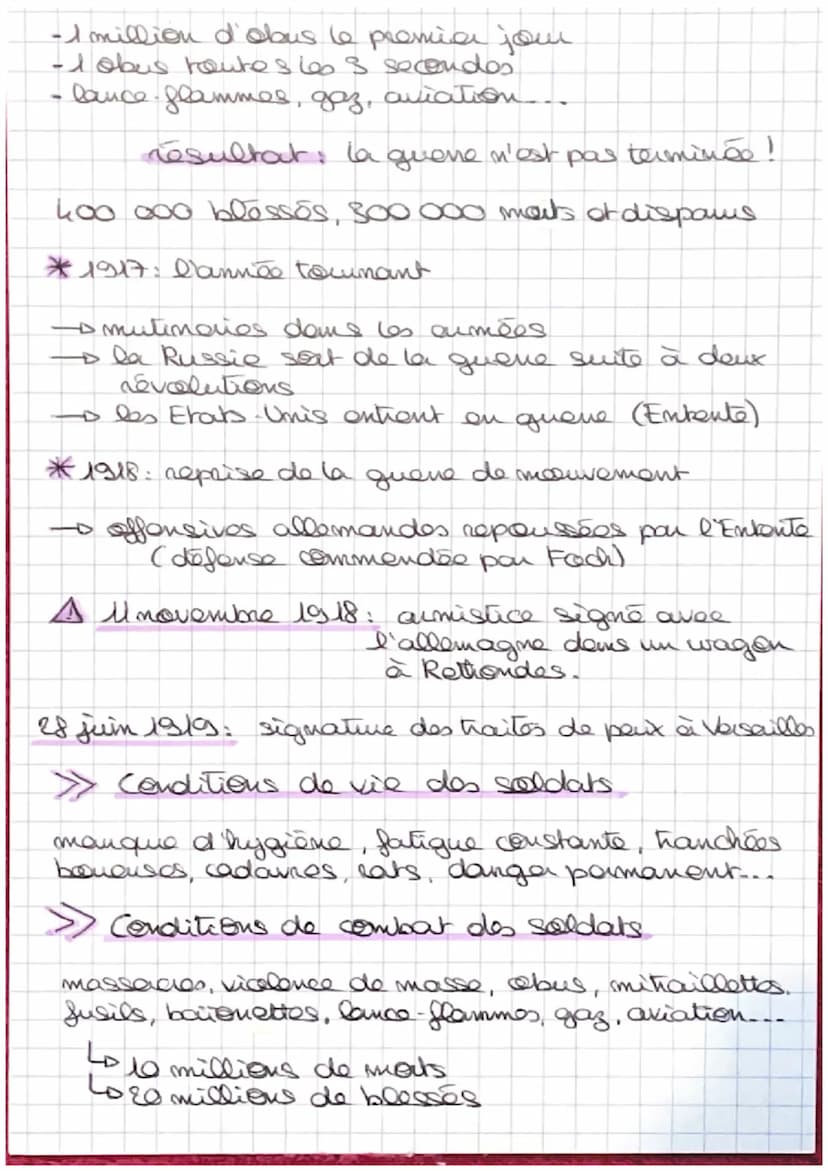 -1 million d'obus le premier jour
-1 obus toutes les 3 secondes
- lance-flammes, gaz, aviation...
résultat : la guerre n'est pas terminée !
400 000 blessés, 300 000 morts et disparus
* 1917 : l'année tournant
→ mutineries dans les armées
→ la Russie sort de la guerre suite à deux
révolutions
→ les Etats-Unis entrent en guerre (Entente)
* 1918 : reprise de la guerre de mouvement
→ offensives allemandes repoussées par l'Entente
(défense commendée par Foch)
⚠ 11 novembre 1918 : armistice signé avec
l'allemagne dans un wagon
à Rethondes.
28 juin 1919 : signature des traités de paix à Versailles
>> Conditions de vie des soldats
manque d'hygiène, fatigue constante, tranchées
boueuses, cadavres, rats, danger permanent...
>> Conditions de combat des soldats
massacres, violence de masse, obus, mitraillettes,
fusils, baïonettes, lance-flammes, gaz, aviation...
↳ 10 millions de morts
↳ 20 millions de blessés